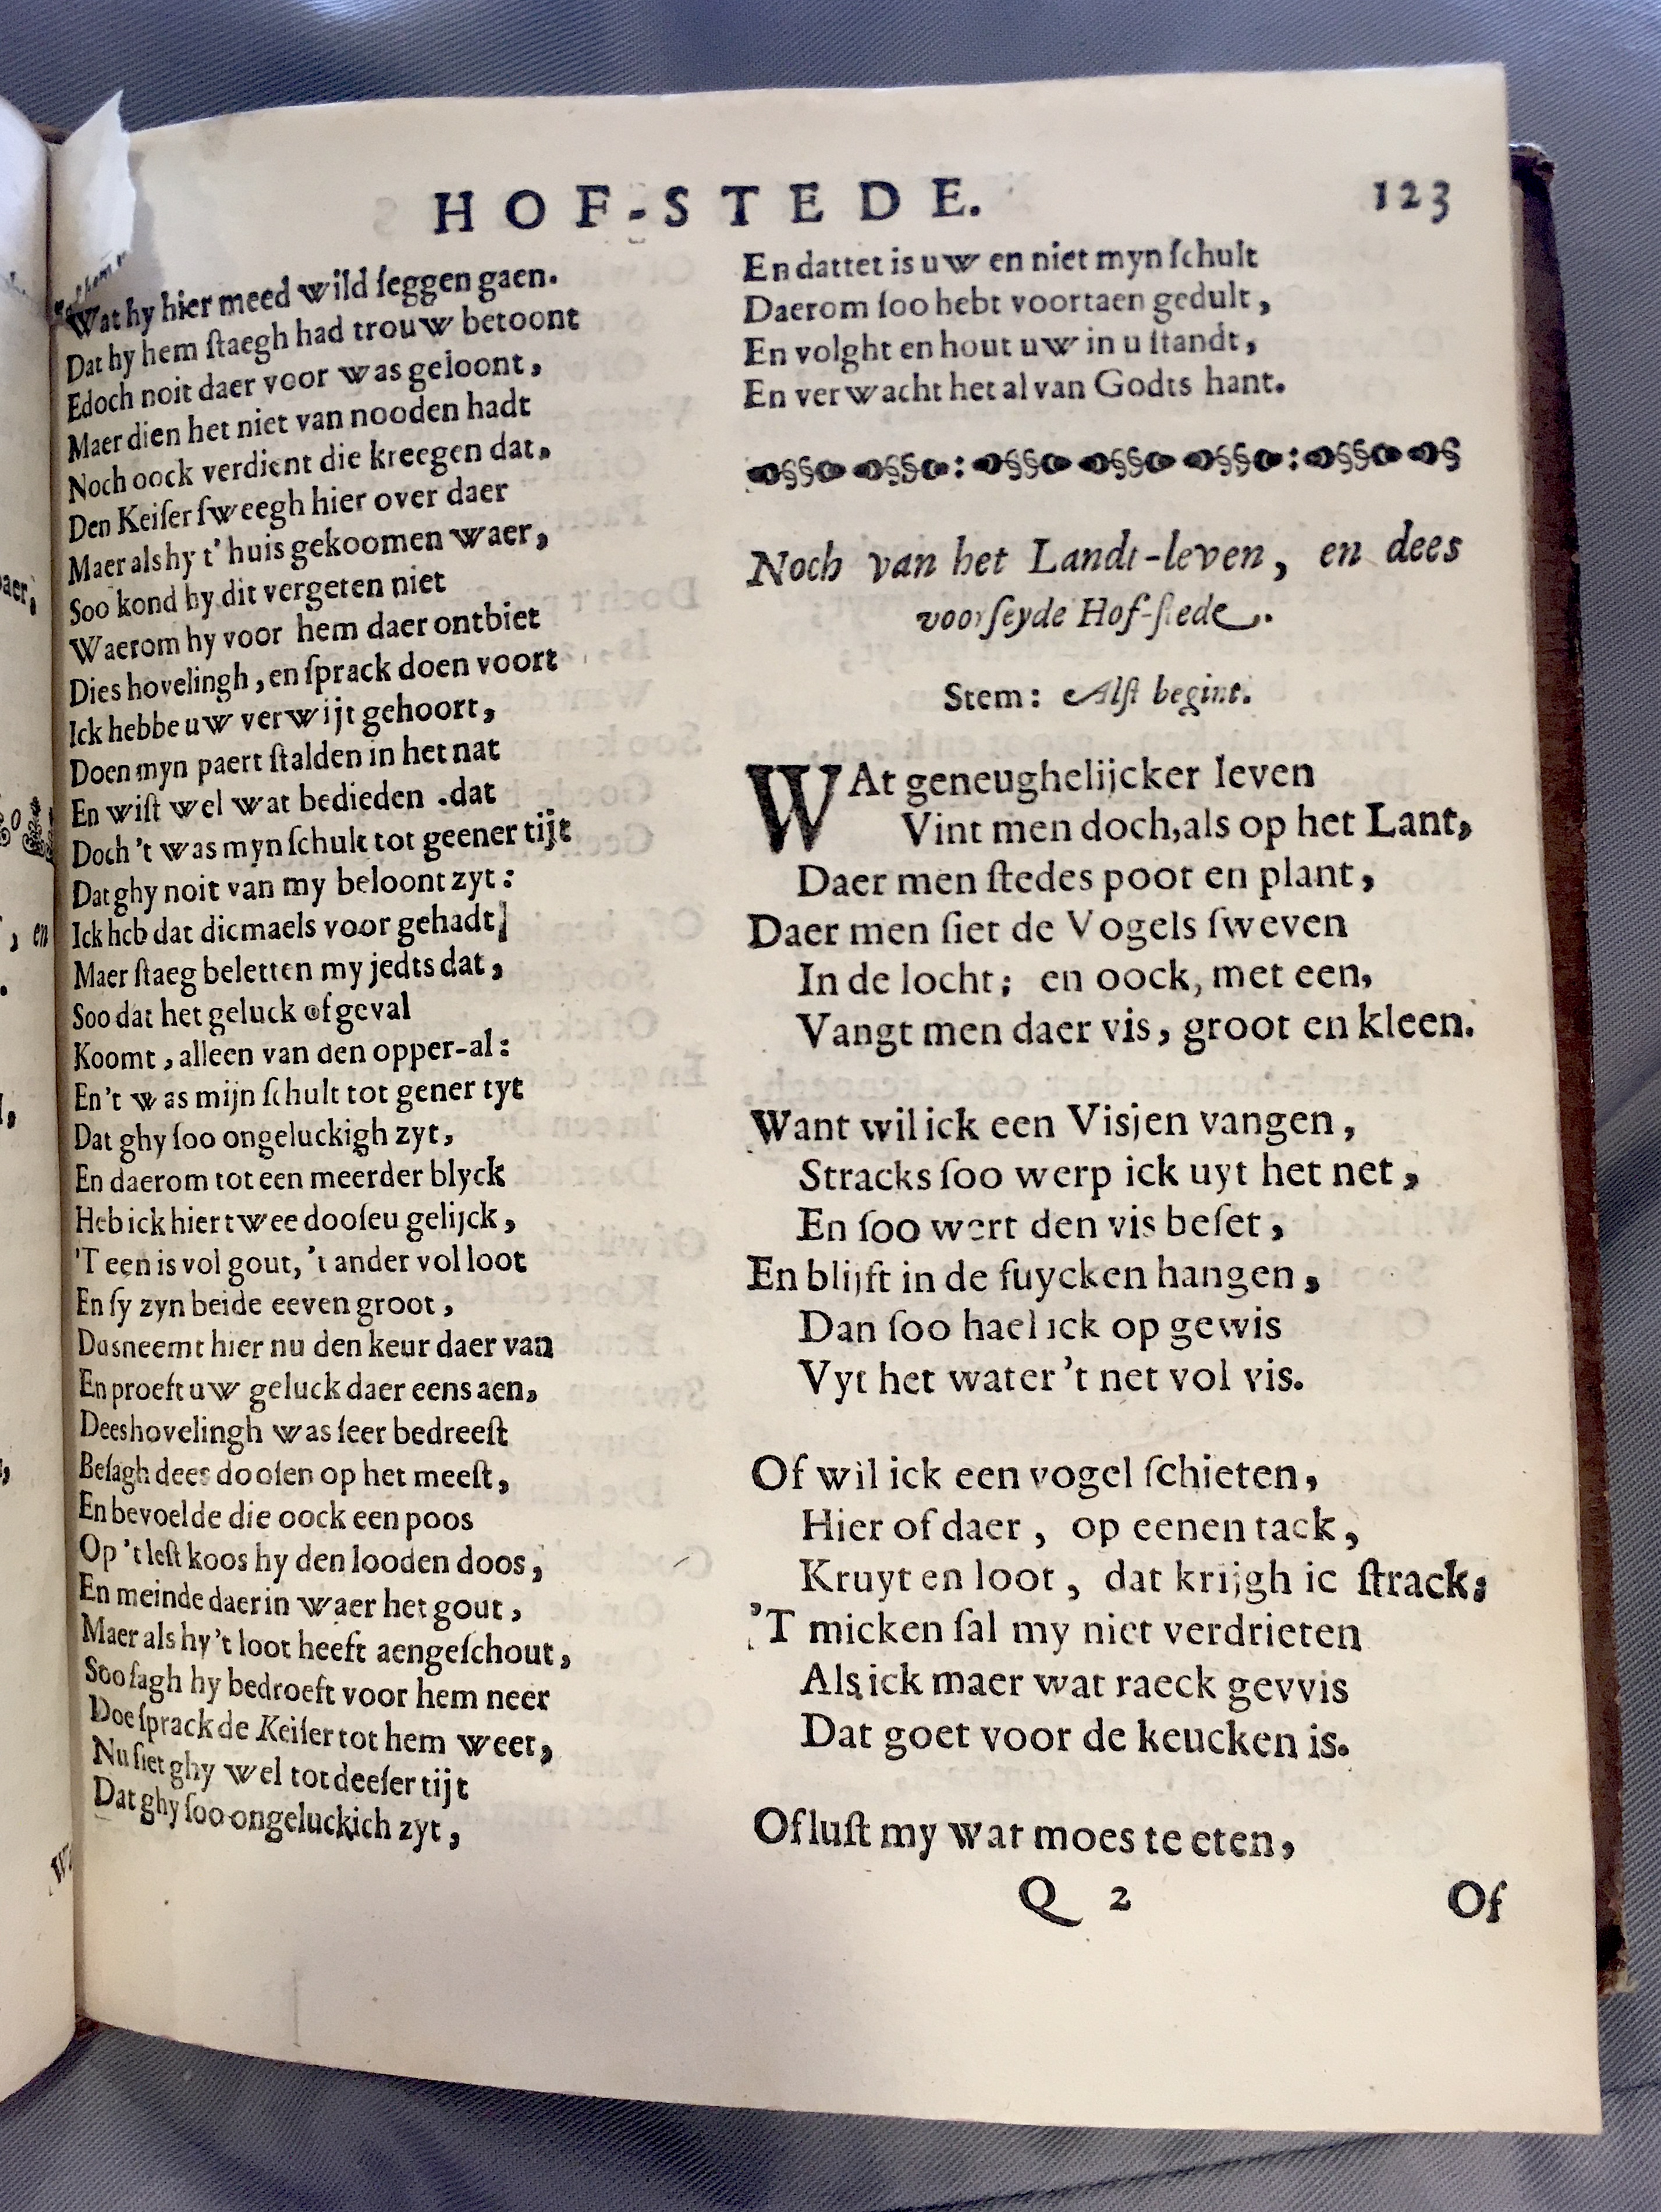 HOF-STEDE. 123
Wat hy hier meed wild ſeggen gaen.
Dat hy hem ſtaegh had trouw betoont
Edoch noit daer voor was geloont,
Maer dien het niet van nooden hadt
Noch oock verdient die kreegen dat.
Den Keiſer ſweegh hier over daer
Maer als hy t'huis gekoomen waer,
Soo kond hy dit vergeten niet
Waerom hy voor hem daer ontbiet
Dies hovelingh, en ſprack doen voort
Ick hebbe uw verwijt gehoort,
Doen myn paert ſtalden in het nat
En wiſt wel wat bedieden .dat
Doch 't was myn ſchult tot geener tijt
Dat ghy noit van my beloont zyt:
Ick heb dat dicmaels voor gehadt
Maer ſtaeg beletten my jedts dat,
Soo dat het geluck of geval
Koomt, alleen van den opper-al:
En 't was mijn ſchult tot gener tyt
Dat ghy ſoo ongeluckigh zyt,
En daerom tot een meerder blyck
Heb ick hier twee dooſeu gelijck,
'T een is vol gout, 't ander vol loot
En ſy zyn beide eeven groot,
Dusneemt hier nu den keur daer van
En proeft uw geluck daer eens aen,
Dees hovelingh was ſeer bedreeſt
Beſagh dees dooſen op het meeſt,
En bevoelde die oock een poos
Op 't leſt koos hy den looden doos,
En meinde daer in waer het gout,
Maer als hy 't loot heeft aengeſchout,
Soo ſagh hy bedroeft voor hem neer
Doe ſprack de Keiſer tot hem weer,
Nu ſiet ghy wel tot deeſer tijt
Dat ghy ſoo ongeluckich zyt,
En dattet is uw en niet myn ſchult
Daerom ſoo hebt voortaen gedult,
En volght en hout uw in u ſtandt,
En verwacht het al van Godts hant.
Noch van het Landt-leven, en dees
voorſeyde Hof-ſtede.
Stem: Alſt begint.
WAt geneughelijcker leven
Vint men doch, als op het Lant,
Daer men ſtedes poot en plant,
Daer men ſiet de Vogels ſweven
In de locht; en oock, met een,
Vangt men daer vis, groot en kleen.
Want wil ick een Visjen vangen,
Stracks ſoo werp ick uyt het net,
En ſoo wert den vis beſet,
En blijft in de fuycken hangen,
Dan ſoo hael ick op gewis
Vyt het water 't net vol vis.
Of wil ick een vogel ſchieten,
Hier of daer, op eenen tack,
Kruyt en loot, dat krijgh ic ſtrack;
'T micken ſal my niet verdrieten
Als ick maer wat raeck gevvis
Dat goet voor de keucken is.
Of luſt my wat moes te eten,
Q 2 Of